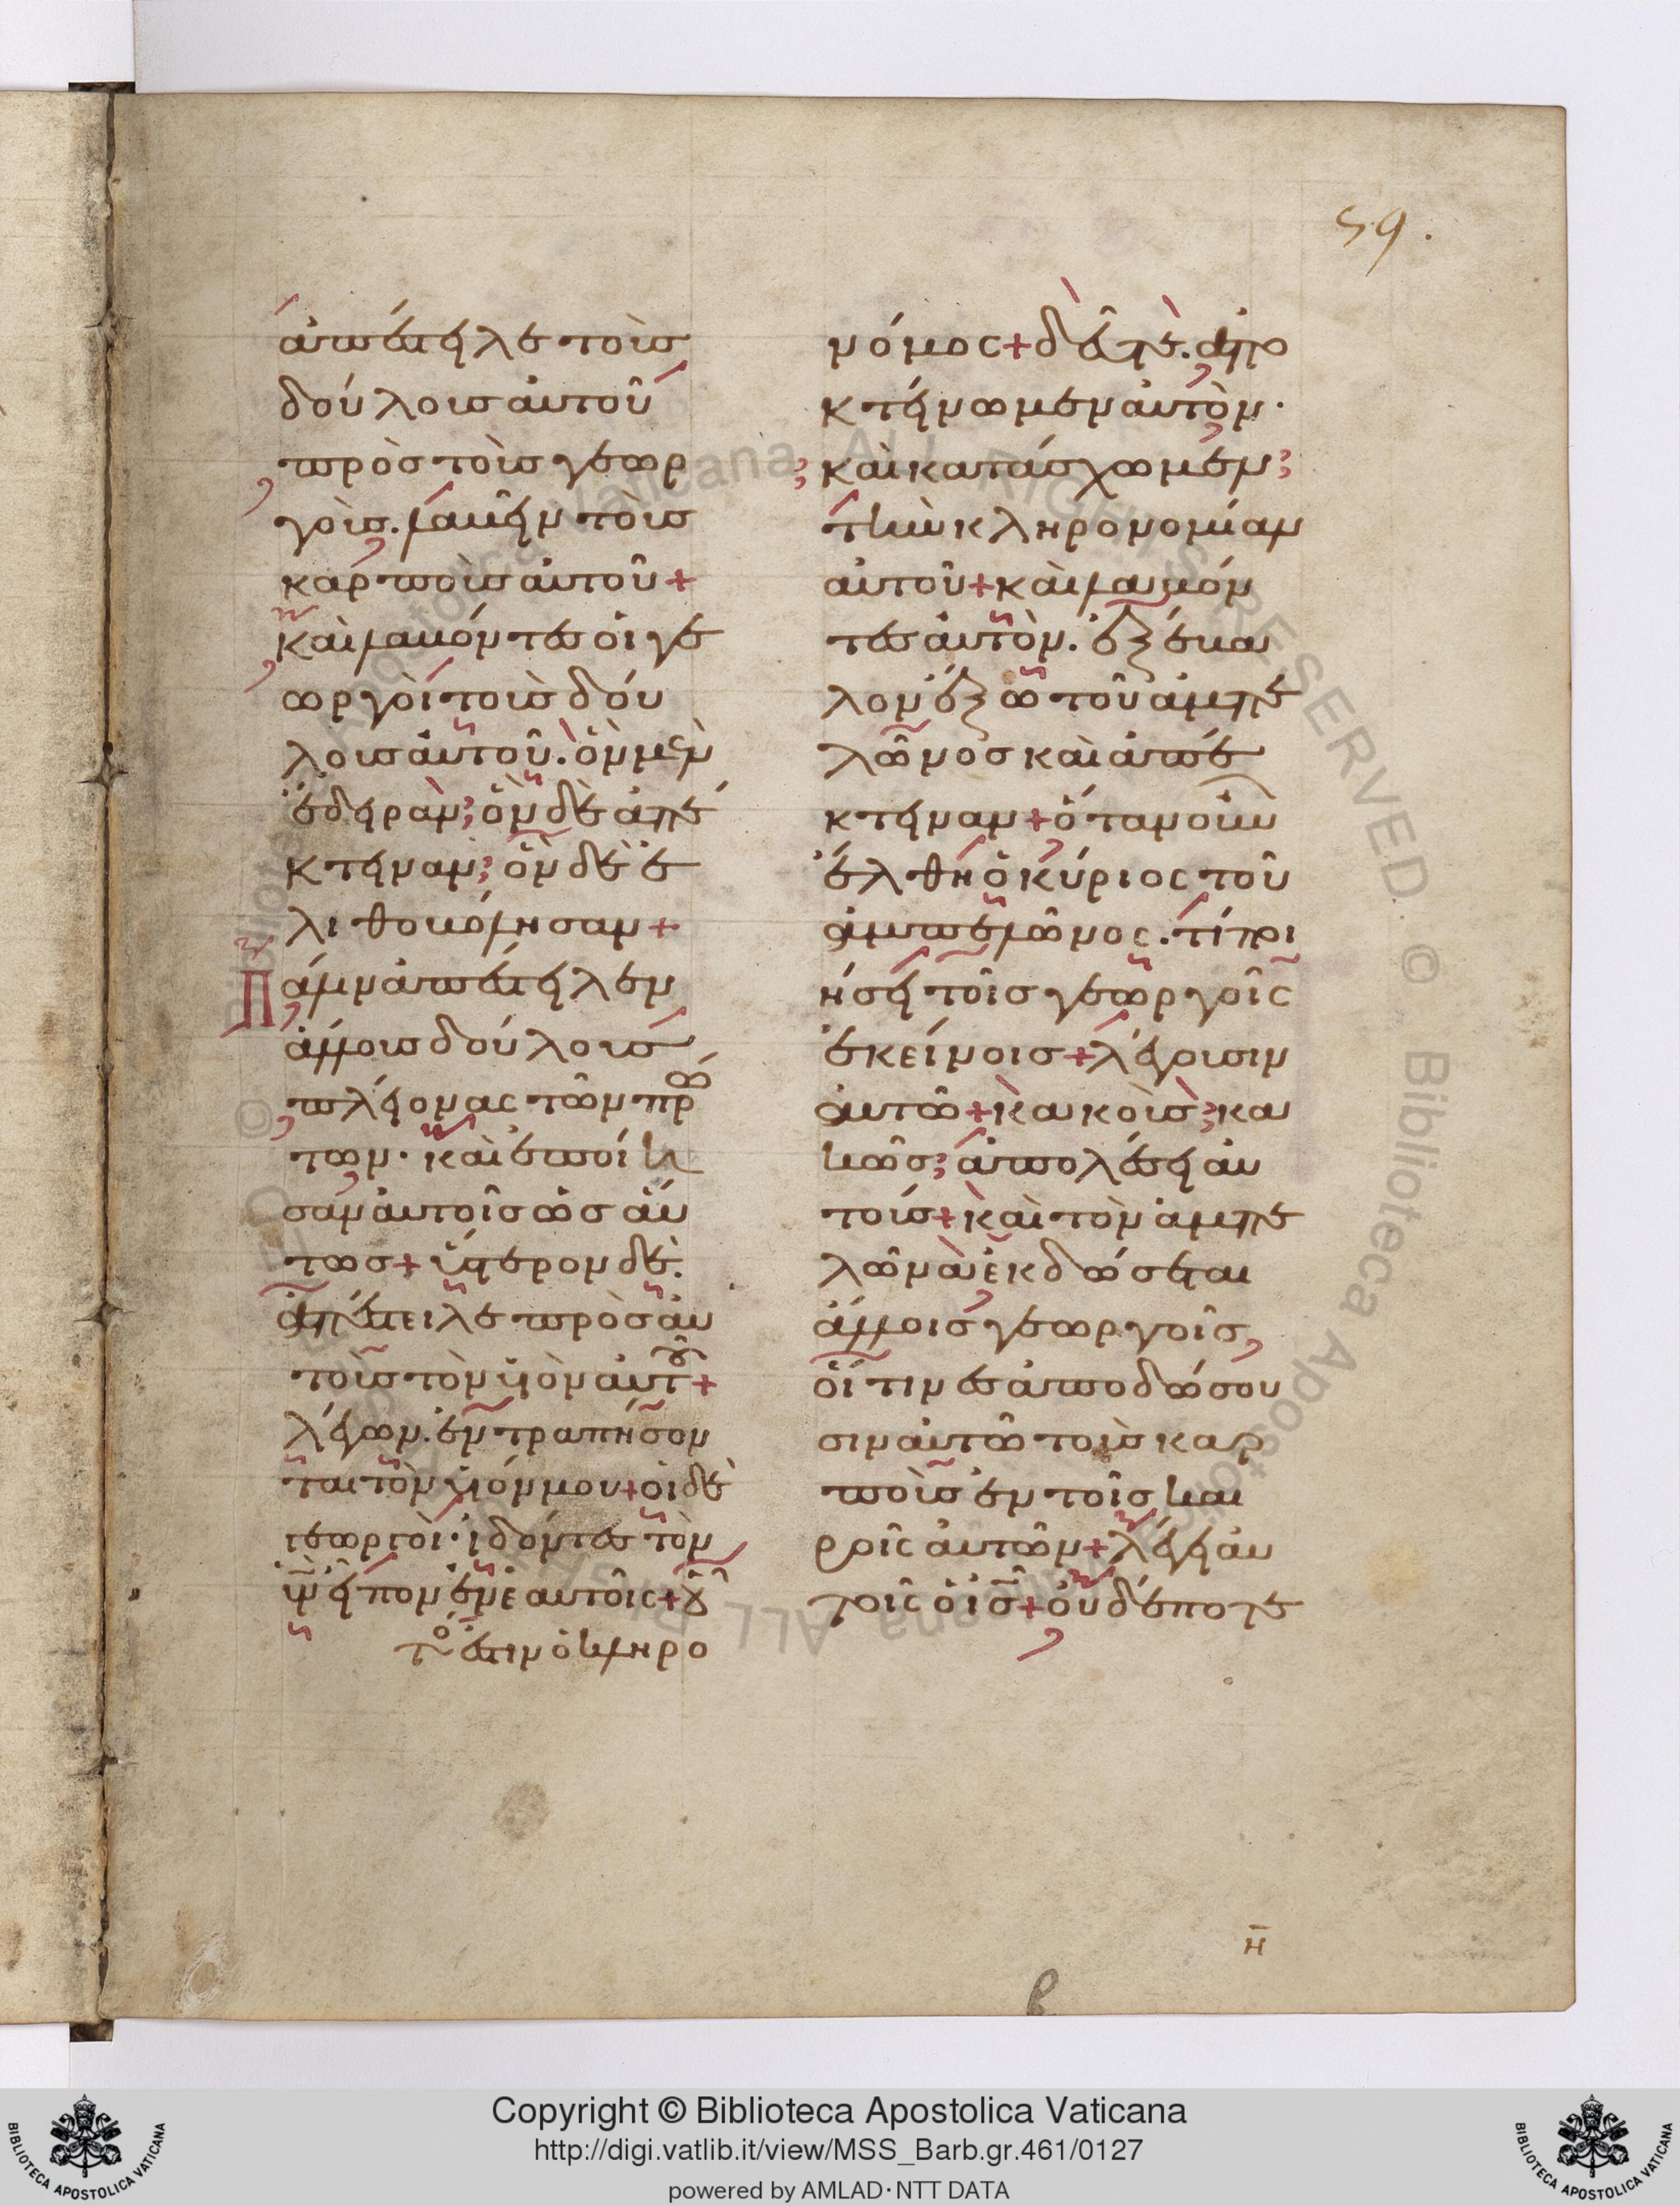 59.
ἀπέστειλε τοὺσ
δούλουσ αὐτοῦ
πρὸσ τοὺσ γεωρ
γοὺσ. λαβεῖν τοὺσ
καρποὺσ αὐτοῦ+
καὶ λαβόντεσ οἱ γε
ωργοὶ τοὺσ δού
λουσ αὐτοῦ. ὃν μὲν
ἔδειραν; ὃν δὲ ἀπέ
κτειναν; ὃν δὲ ἐ
λιθοβόλησαν+
Πάλιν ἀπέστειλεν
ἄλλουσ δούλουσ
πλείονας τῶν πρώ
των. καὶ ἐποίη
σαν αὐτοῖσ ὡσαύ
τωσ+ ὕστερον δὲ.
ἀπέστειλε πρὸσ αὐ
τοὺσ τὸν υἱὸν αὐτοῦ+
λέγων. ἐντραπήσον
ται τὸν υἱόν μου+ οἱ δὲ
γεωργοὶ. ἰδόντεσ τὸν
υν̅ εἶπον ἐν ἑαυτοῖς+ οὗ
τός ἐστιν ὁ κληρο
νόμος+ δεῦτε. ἀπο
κτείνωμεν αὐτὸν.
καὶ κατάσχωμεν;
τὴν κληρονομίαν
αὐτοῦ+ καὶ λαβόν
τεσ αὐτὸν. ἐξέβα
λον ἔξω τοῦ ἀμπε
λῶνοσ καὶ ἀπέ
κτειναν+ ὅταν οὖν
ἔλθη ὁ κύριος τοῦ
ἀμπελῶνος. τί ποι
ήσει τοῖσ γεωργοῖς
ἐκείνοισ+ λέγουσιν
αὐτῶ+ κακοὺσ; κα
κῶσ; ἀπολέσει αὐ
τούσ+ καὶ τὸν ἀμπε
λῶνα ἐκδώσεται
ἄλλοισ γεωργοῖσ,
οἵτινεσ ἀποδώσου
σιν αὐτῶ τοὺσ καρ
ποὺσ ἐν τοῖσ και
ροῖς αὐτῶν+ λέγει αὐ
τοῖς ὁ ισ̅+ οὐδέποτε
η̅
Copyright © Biblioteca Apostolica Vaticana
http://digi.vatlib.it/view/MSS_Barb.gr.461/0127
powered by AMLAD·NTT DATA